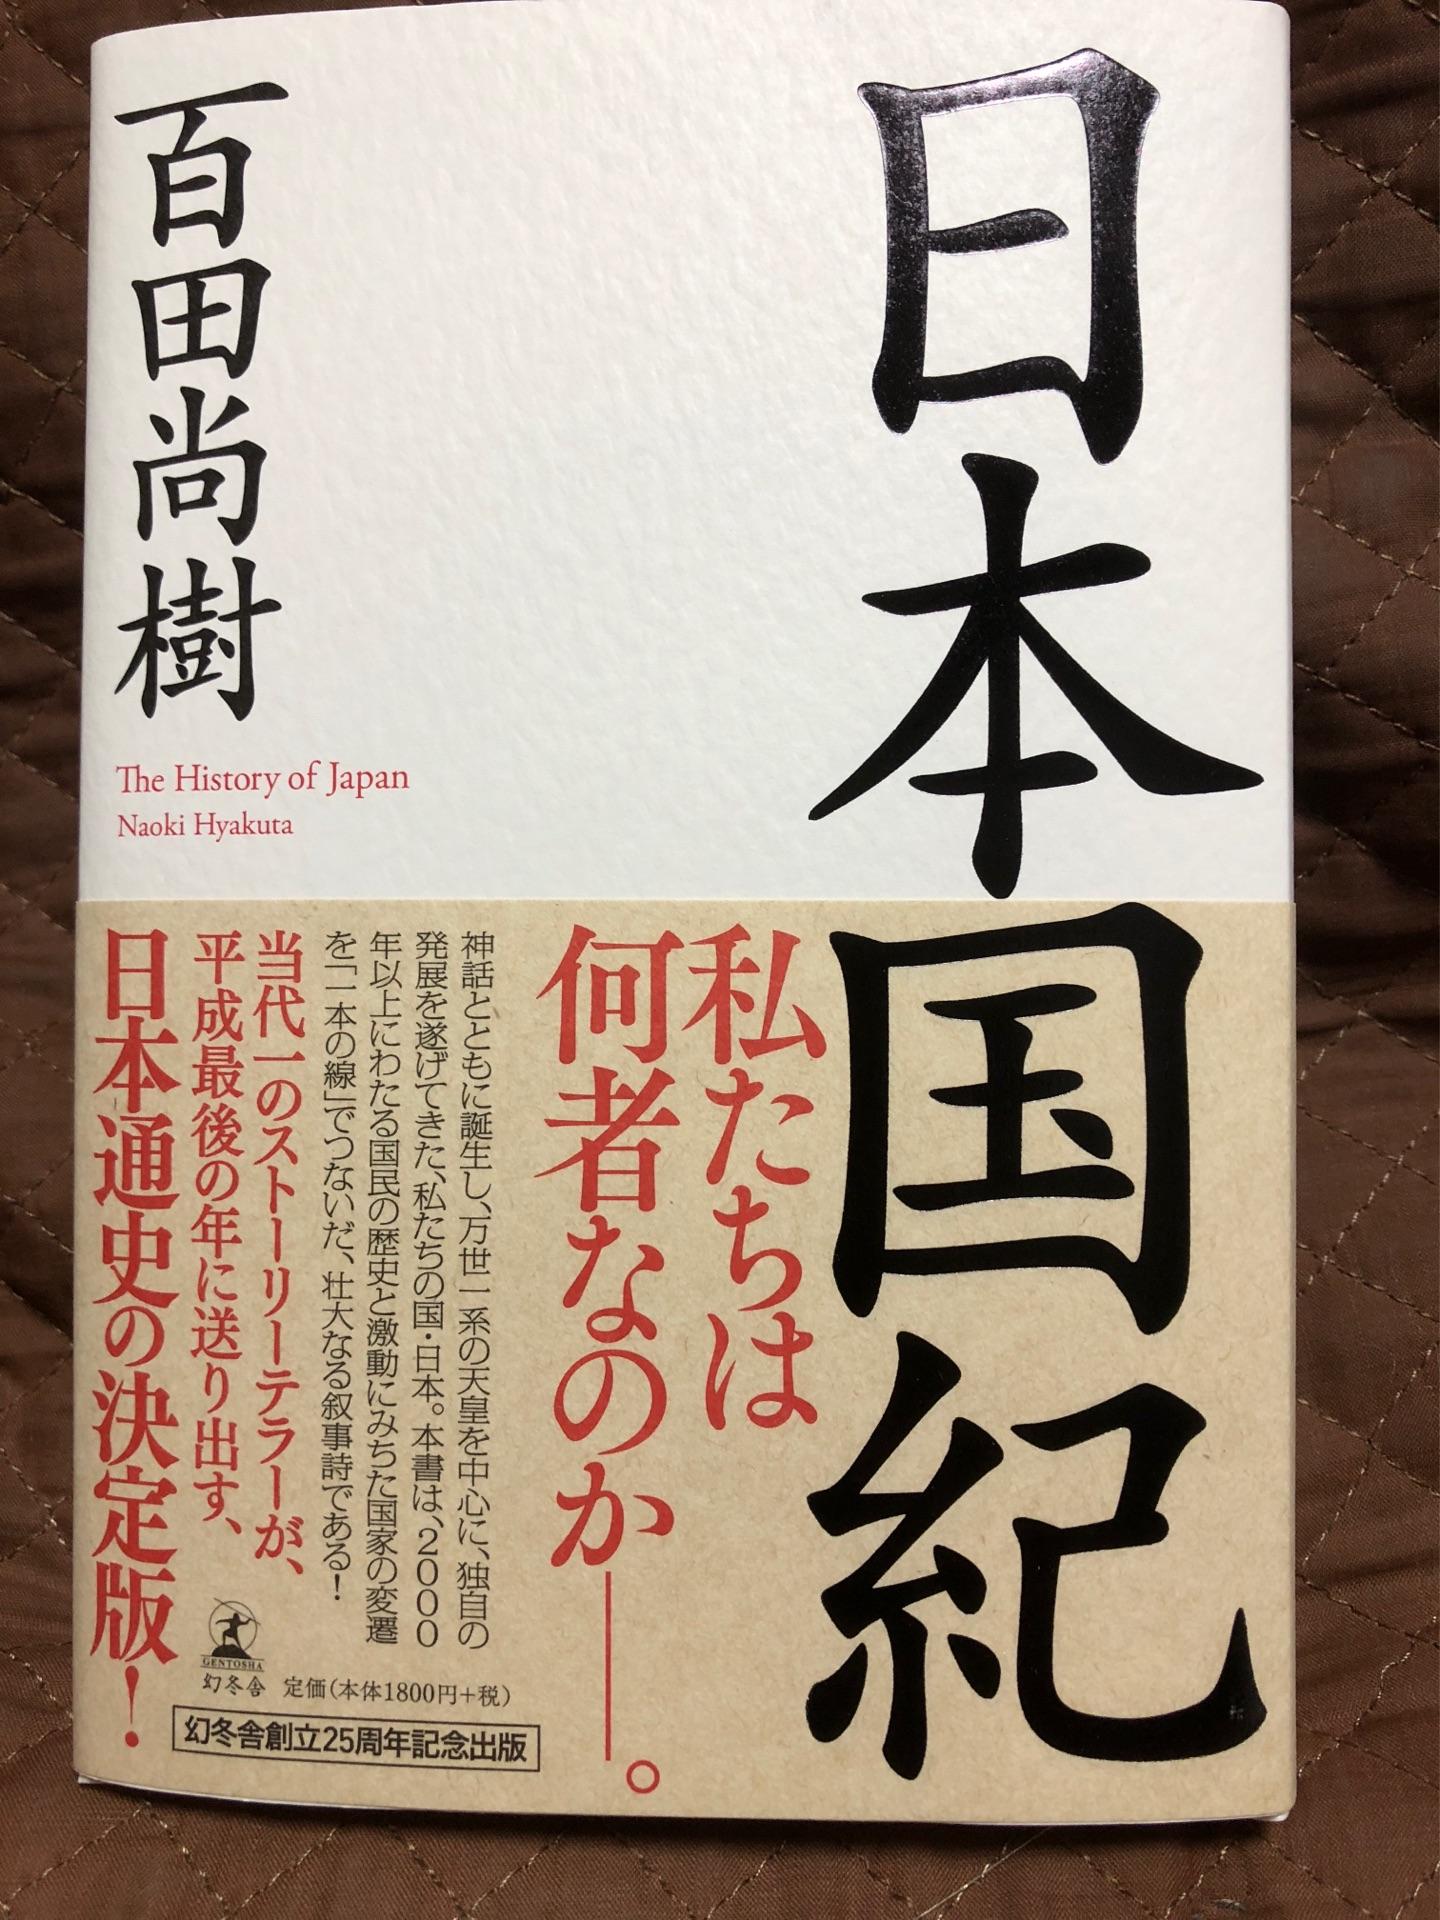 日本国紀
百田尚樹
The History of Japan
Naoki Hyakuta
私たちは
何者なのか――。
神話とともに誕生し、万世一系の天皇を中心に、独自の
発展を遂げてきた、私たちの国・日本。本書は、2000
年以上にわたる国民の歴史と激動にみちた国家の変遷
を「一本の線」でつないだ、壮大なる叙事詩である!
当代一のストーリーテラーが、
平成最後の年に送り出す、
日本通史の決定版!
GENTOSHA
幻冬舎
定価(本体1800円+税)
幻冬舎創立25周年記念出版